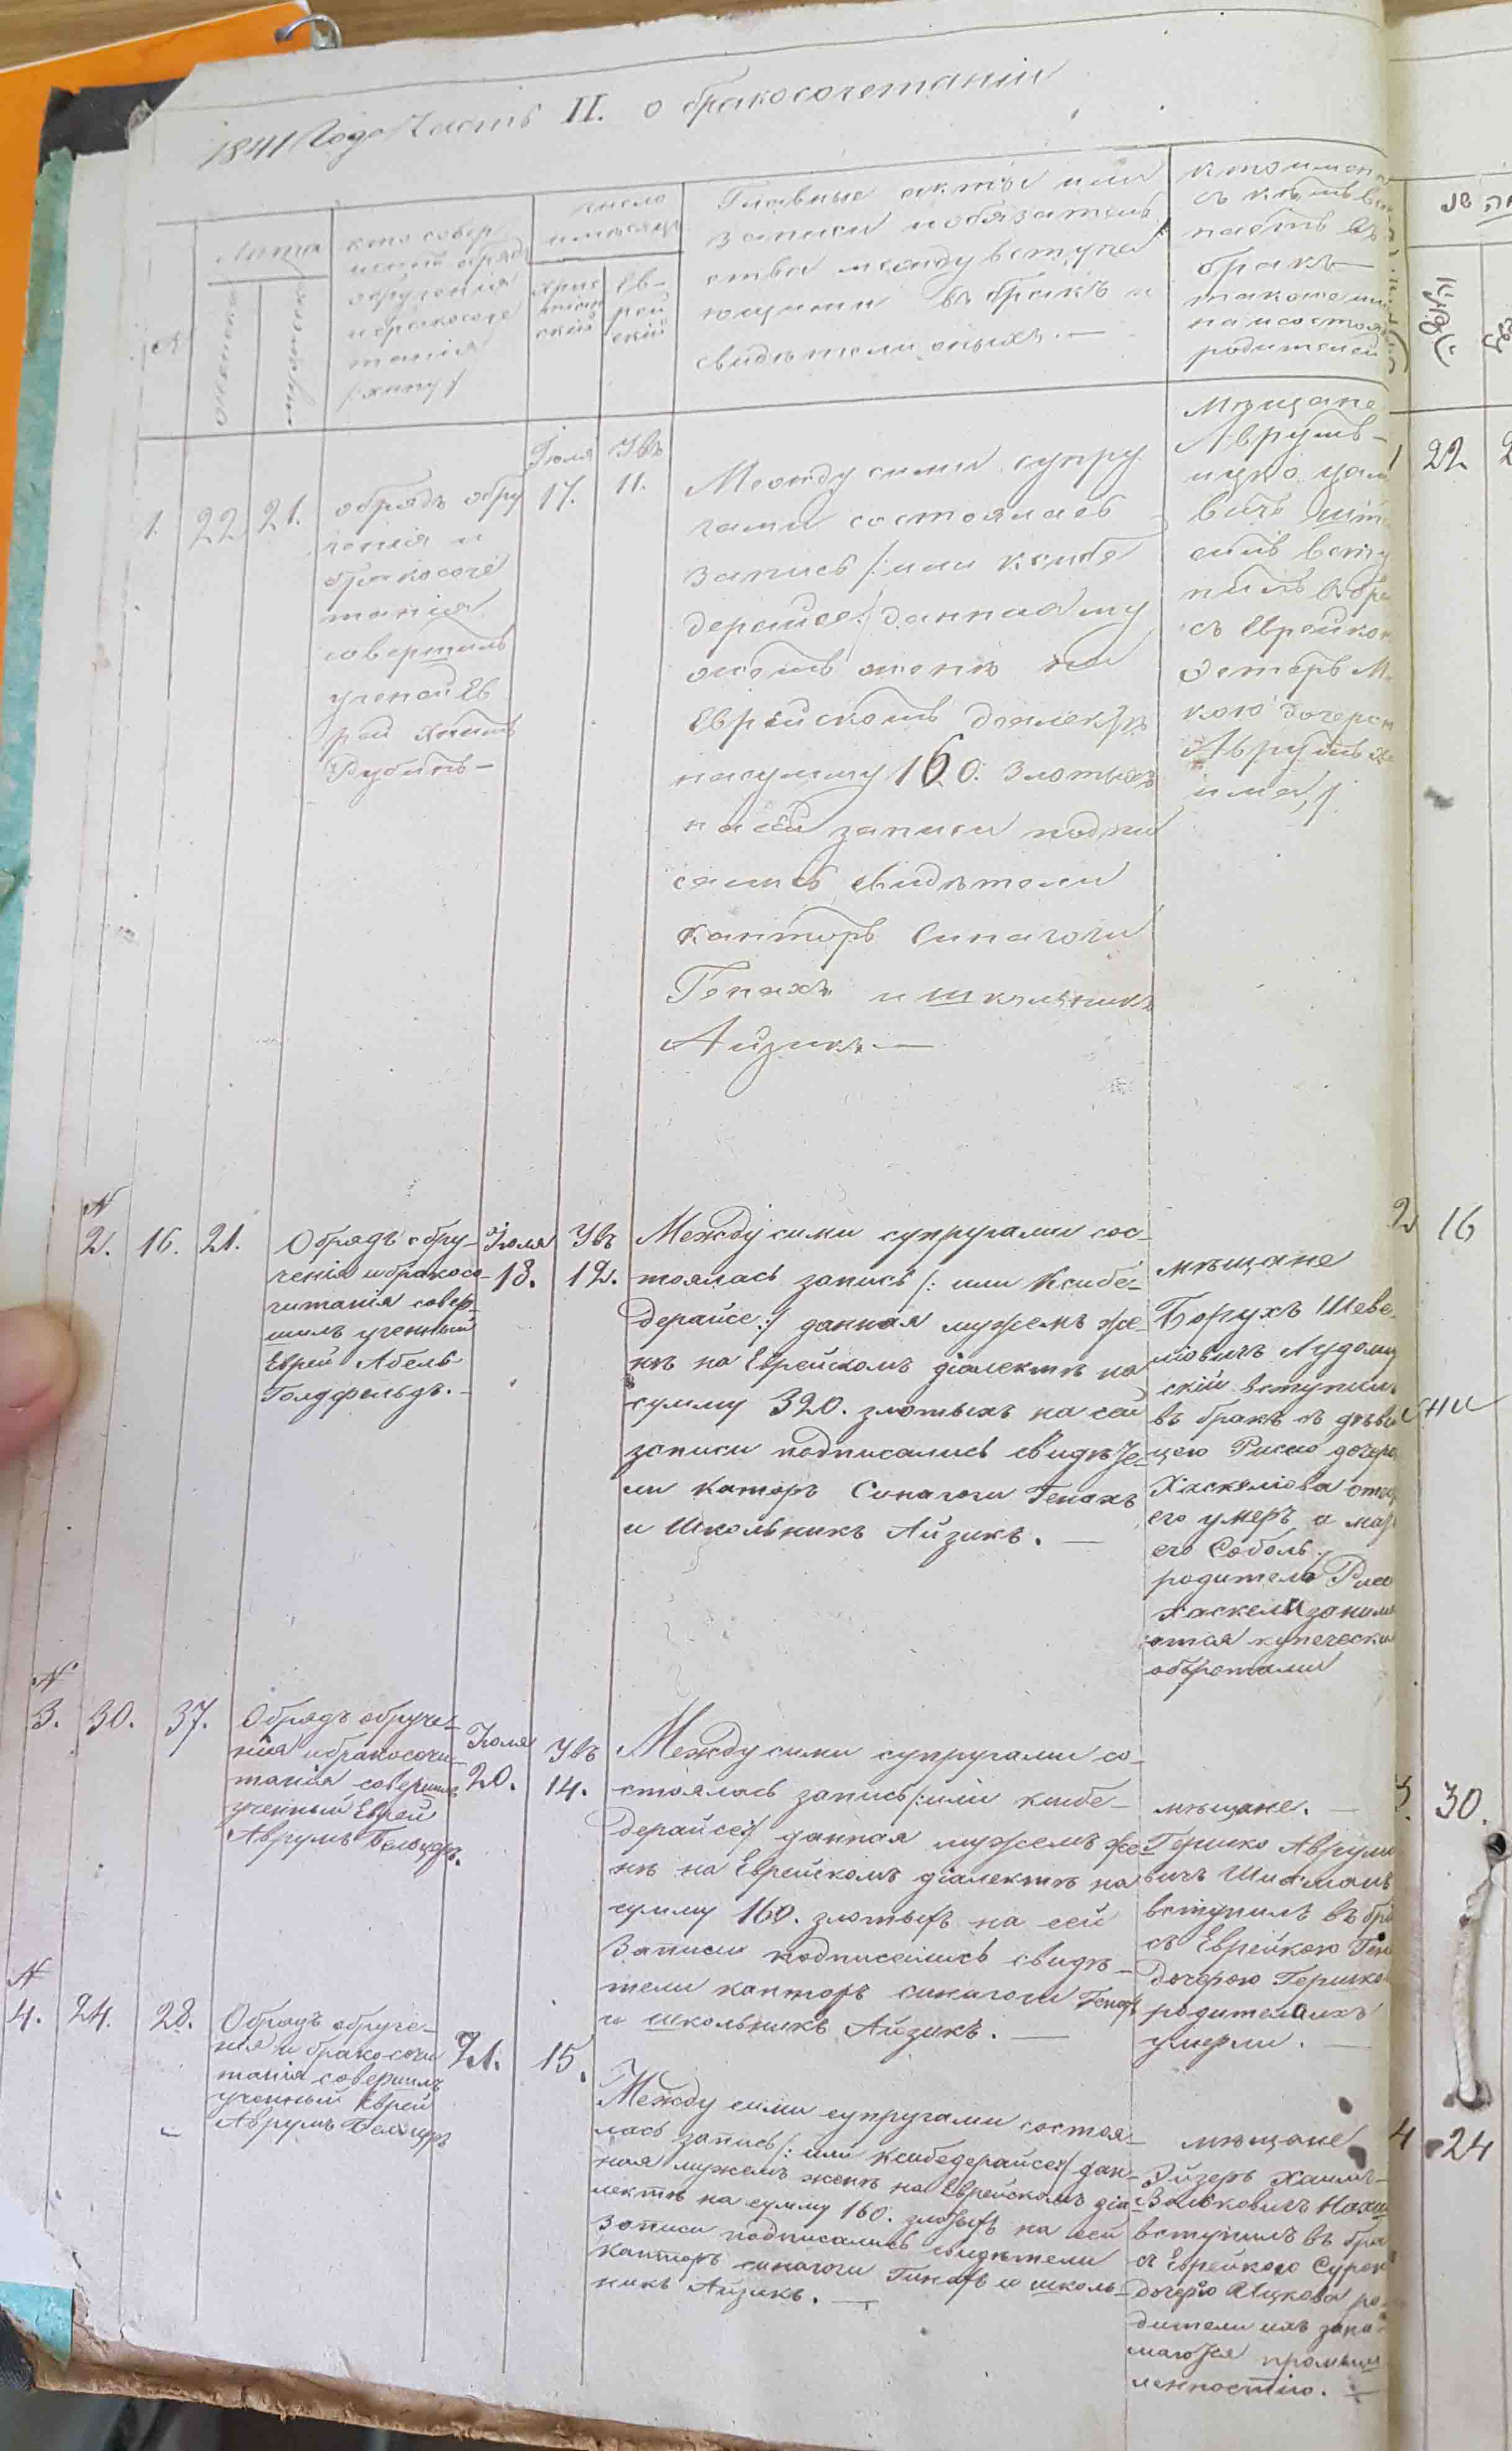 1841 Года Часть II. о бракосочетаніи
№
Лѣта
женска
мужеска
кто совер
шалъ обрядъ
обрученія
и бракосоче
танія
число
и мѣсяцъ
Хрис
тіан
скій
Ев-
рей
скій
Главные акты или
записи и обязатель
ства между вступа
ющими въ бракъ и
свидѣтели оныхъ. —
кто имен
съ кѣмъ
паетъ въ
бракъ
также им
родителей
1.
22
21.
обрядъ обру
ченія и
бракосоче
танія
совершилъ
ученой Ев
рей Хаимъ
Рубинъ —
Іюля
17.
Увъ
11.
Между сими супру
гами состоялась
запись /: или ксибе
дерайсе :/ данная му
жемъ женѣ на
Еврейскомъ діалектѣ
на сумму 160. злотыхъ
на сей записи подпи
сались свидѣтели
канторъ Синагоги
Генахъ и школьникъ
Айзикъ. —
Мѣщане
Аврумъ-
ицко
вичъ
всту
пилъ въ бра
съ Еврейкою
Эстеръ М
кою дочерью
Аврумъ
№
2.
16.
21.
Обрядъ обру-
ченія и бракосо-
читанія совер-
шилъ ученный
Еврей Абель
Голдфельдъ. —
Іюля
18.
Увъ
12.
Между сими супругами сос-
тоялась запись /: или Ксибе-
дерайсе :/ данная мужемъ же-
нѣ на Еврейскомъ діалектѣ на
сумму 320. злотыхъ на сей
записи подписались свидѣте-
ли каторъ Синагоги Генахъ
и Школьникъ Айзикъ. —
мѣщане
Борухъ Шеве
ліовичъ Лудоми
скій вступилъ
въ бракъ съ дѣви
цею Рисею дочер
Хаскеліова отец
его умеръ а мат
его Соболь.
родители Рис
Хаскель занима
ются купечески
оборотами
№
3.
30.
37.
Обрядъ обруче-
нія и бракосочи-
танія совершилъ
ученный Еврей
Аврумъ Белоцерк.
Іюля
20.
Увъ
14.
Между сими супругами со-
стоялась запись /: или ксибе-
дерайсе :/ данная мужемъ же-
нѣ на Еврейскомъ діалектѣ на
сумму 160. злотыхъ на сей
записи подписались свидѣ-
тели канторъ синагоги Генахъ
и школьникъ Айзикъ. —
мѣщане. —
Гершко Аврумо
вичъ Шихманъ
вступилъ въ бра
съ Еврейкою Ген
дочерою Гершко
родители ихъ
умерли. —
№
4.
24.
28.
Обрядъ обруче-
нія и бракосочи
танія совершилъ
ученный Еврей
Аврумъ Белоцерк
21.
15.
Между сими супругами состоя-
лась запись /: или ксибедерайсе :/ дан-
ная мужемъ женѣ на Еврейскомъ діа-
лектѣ на сумму 160. злотыхъ на сей
записи подписались свидѣтели
канторъ синагоги Гинахъ и школь-
никъ Айзикъ. —
мѣщане
Эйзеръ Хаимъ-
Волковичъ
вступилъ въ бра
съ Еврейкою Сурою
дочерю Ицкова ро-
дители ихъ зани-
маются промыш
ленностію. —
1 22
2 16
3. 30.
4 24